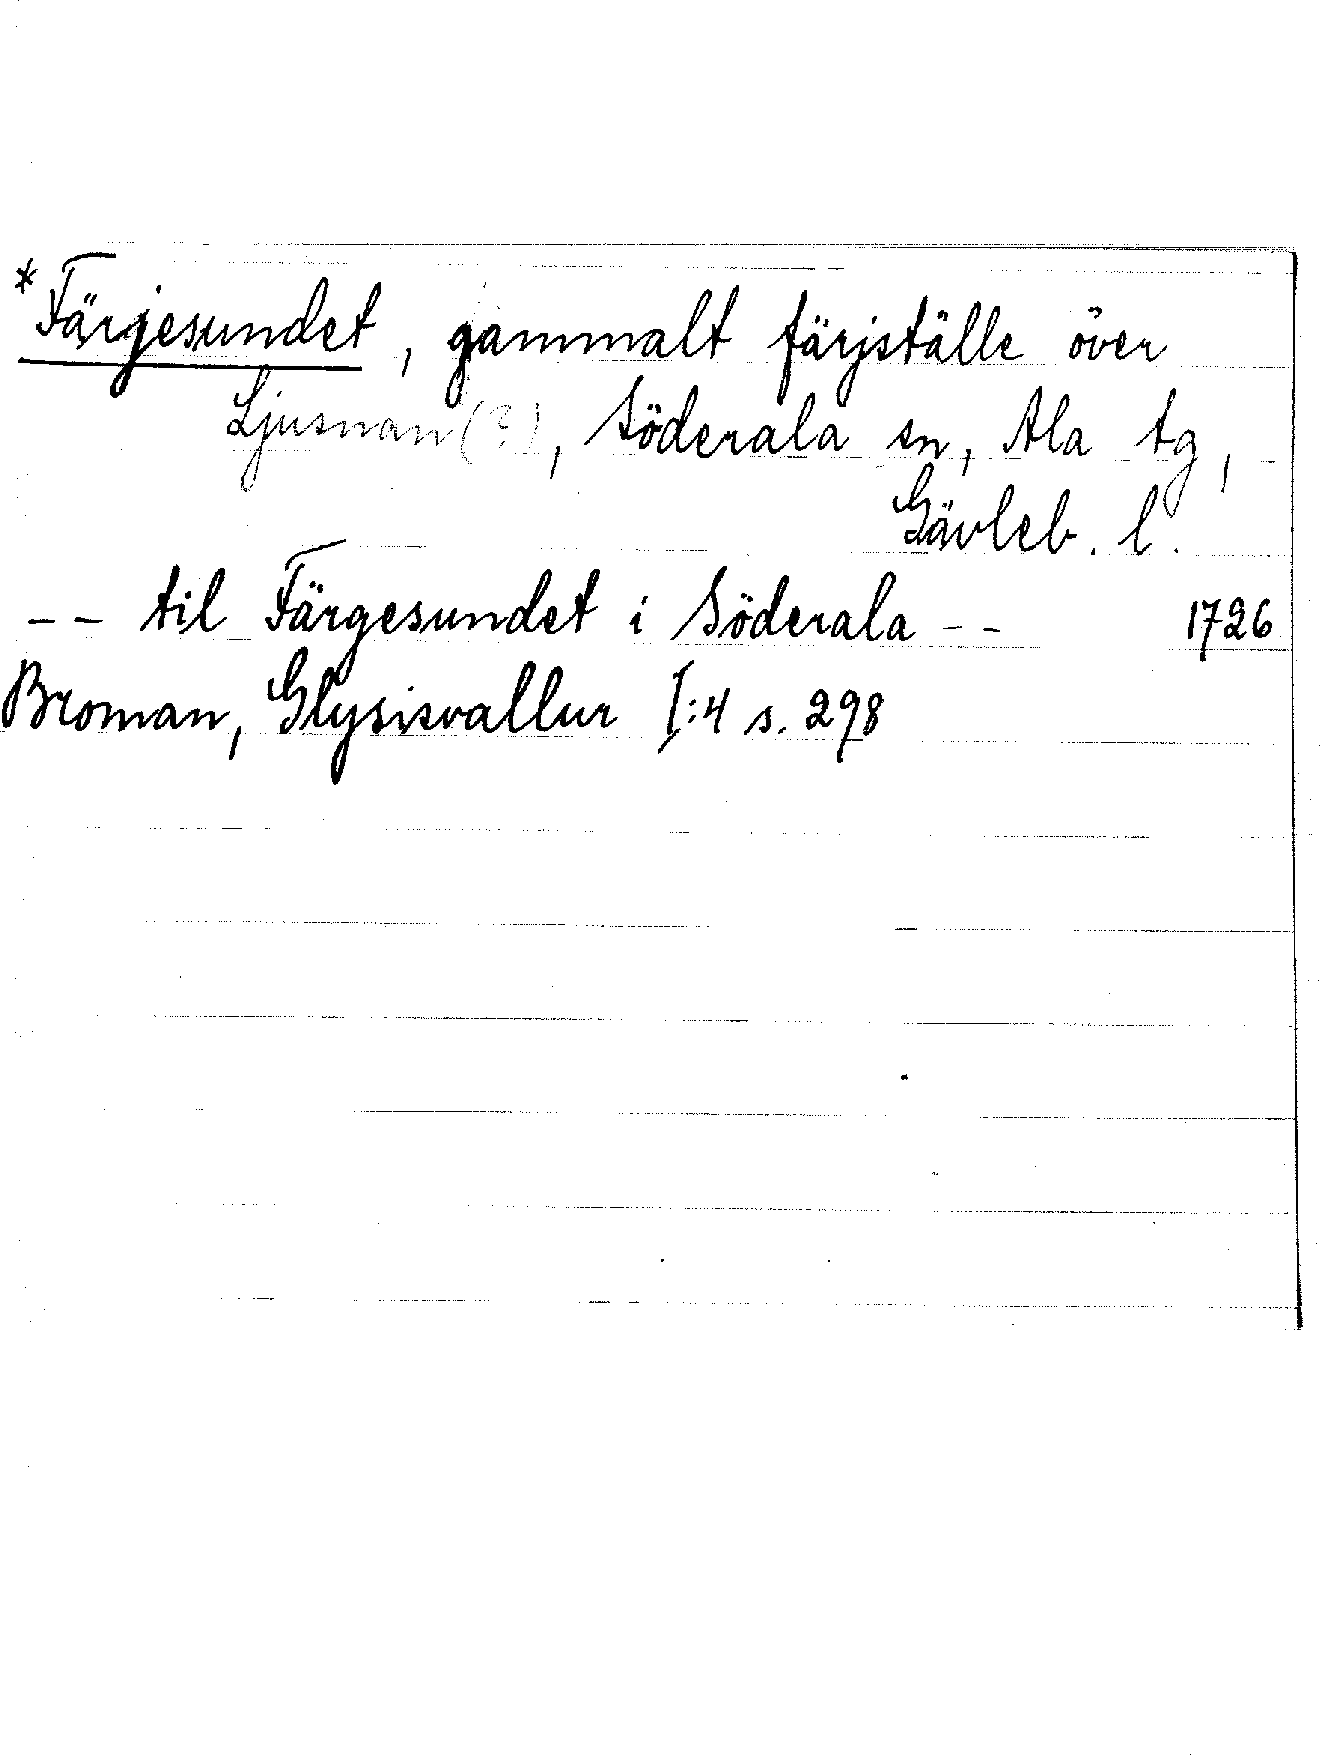 *Färjesundet, gammalt färjställe över
Ljusnan(?), Söderala sn, Ala tg,
Gävleb. l.
-- til Färgesundet i Söderala -- 1726
Broman, Glysisvallur I:4 s. 298